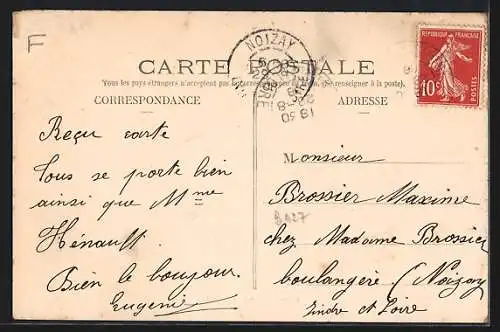 F
CARTE POSTALE
Tous les pays étrangers n'acceptent pas la correspondance (se renseigner à la poste).
CORRESPONDANCE
ADRESSE
NOIZAY
REPUBLIQUE FRANÇAISE
10c
POSTES
Reçu carte
Tous se porte bien
ainsi que Mme
Hénault.
Bien le boujour.
Eugenie
Monsieur
Brossier Maxime
chez Madame Brossier
boulangère (Noizay
Indre et Loire